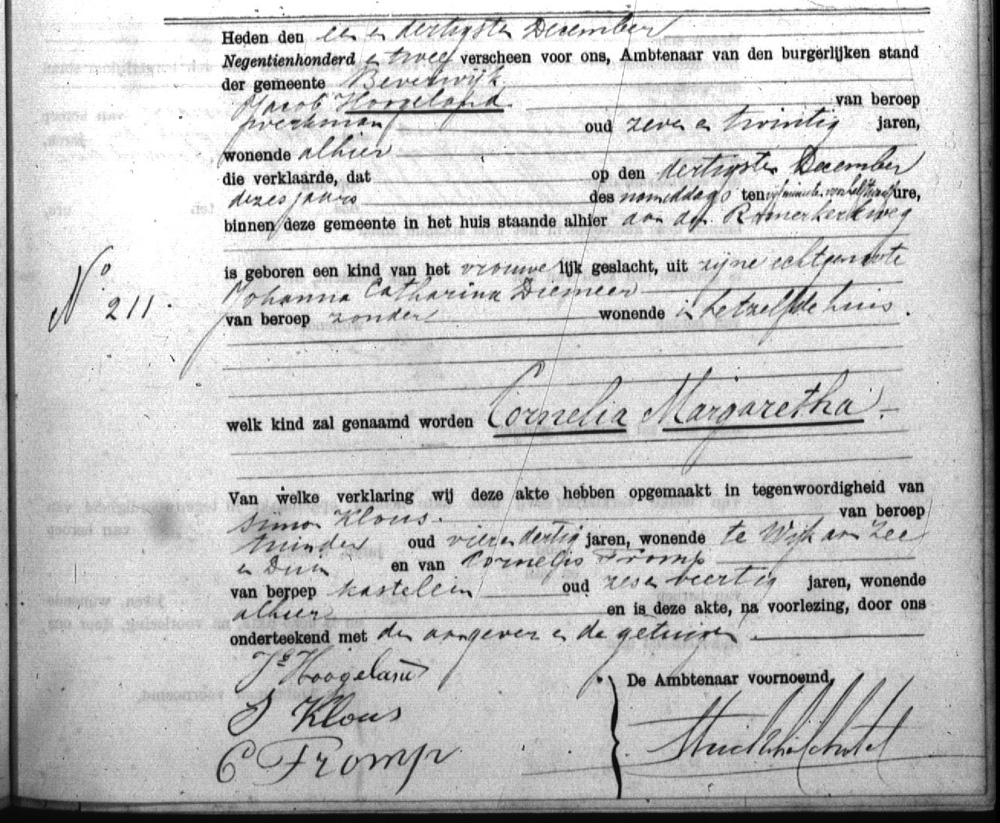 Heden den een en dertigsten December
Negentienhonderd en twee verscheen voor ons, Ambtenaar van den burgerlijken stand
der gemeente Beverwijk
Jacob Hoogeland van beroep
werkman oud zeven en twintig jaren,
wonende alhier
die verklaarde, dat op den dertigsten December
dezes jaars des nameddags ten ure,
binnen deze gemeente in het huis staande alhier aan den
is geboren een kind van het vrouwelijk geslacht, uit zijne echtgenoote
Johanna Catharina Diemeer
van beroep zonder wonende in hetzelfde huis.
No 211.
welk kind zal genaamd worden Cornelia Margaretha.
Van welke verklaring wij deze akte hebben opgemaakt in tegenwoordigheid van
Simon Klous. van beroep
tuinder oud vier en dertig jaren, wonende te Wijk aan Zee
en Duin en van Cornelis Tromp
van beroep kastelein oud zes en veertig jaren, wonende
alhier en is deze akte, na voorlezing, door ons
onderteekend met den aangever en de getuigen
Jb Hoogeland
De Ambtenaar voornoemd,
S Klous
C Tromp